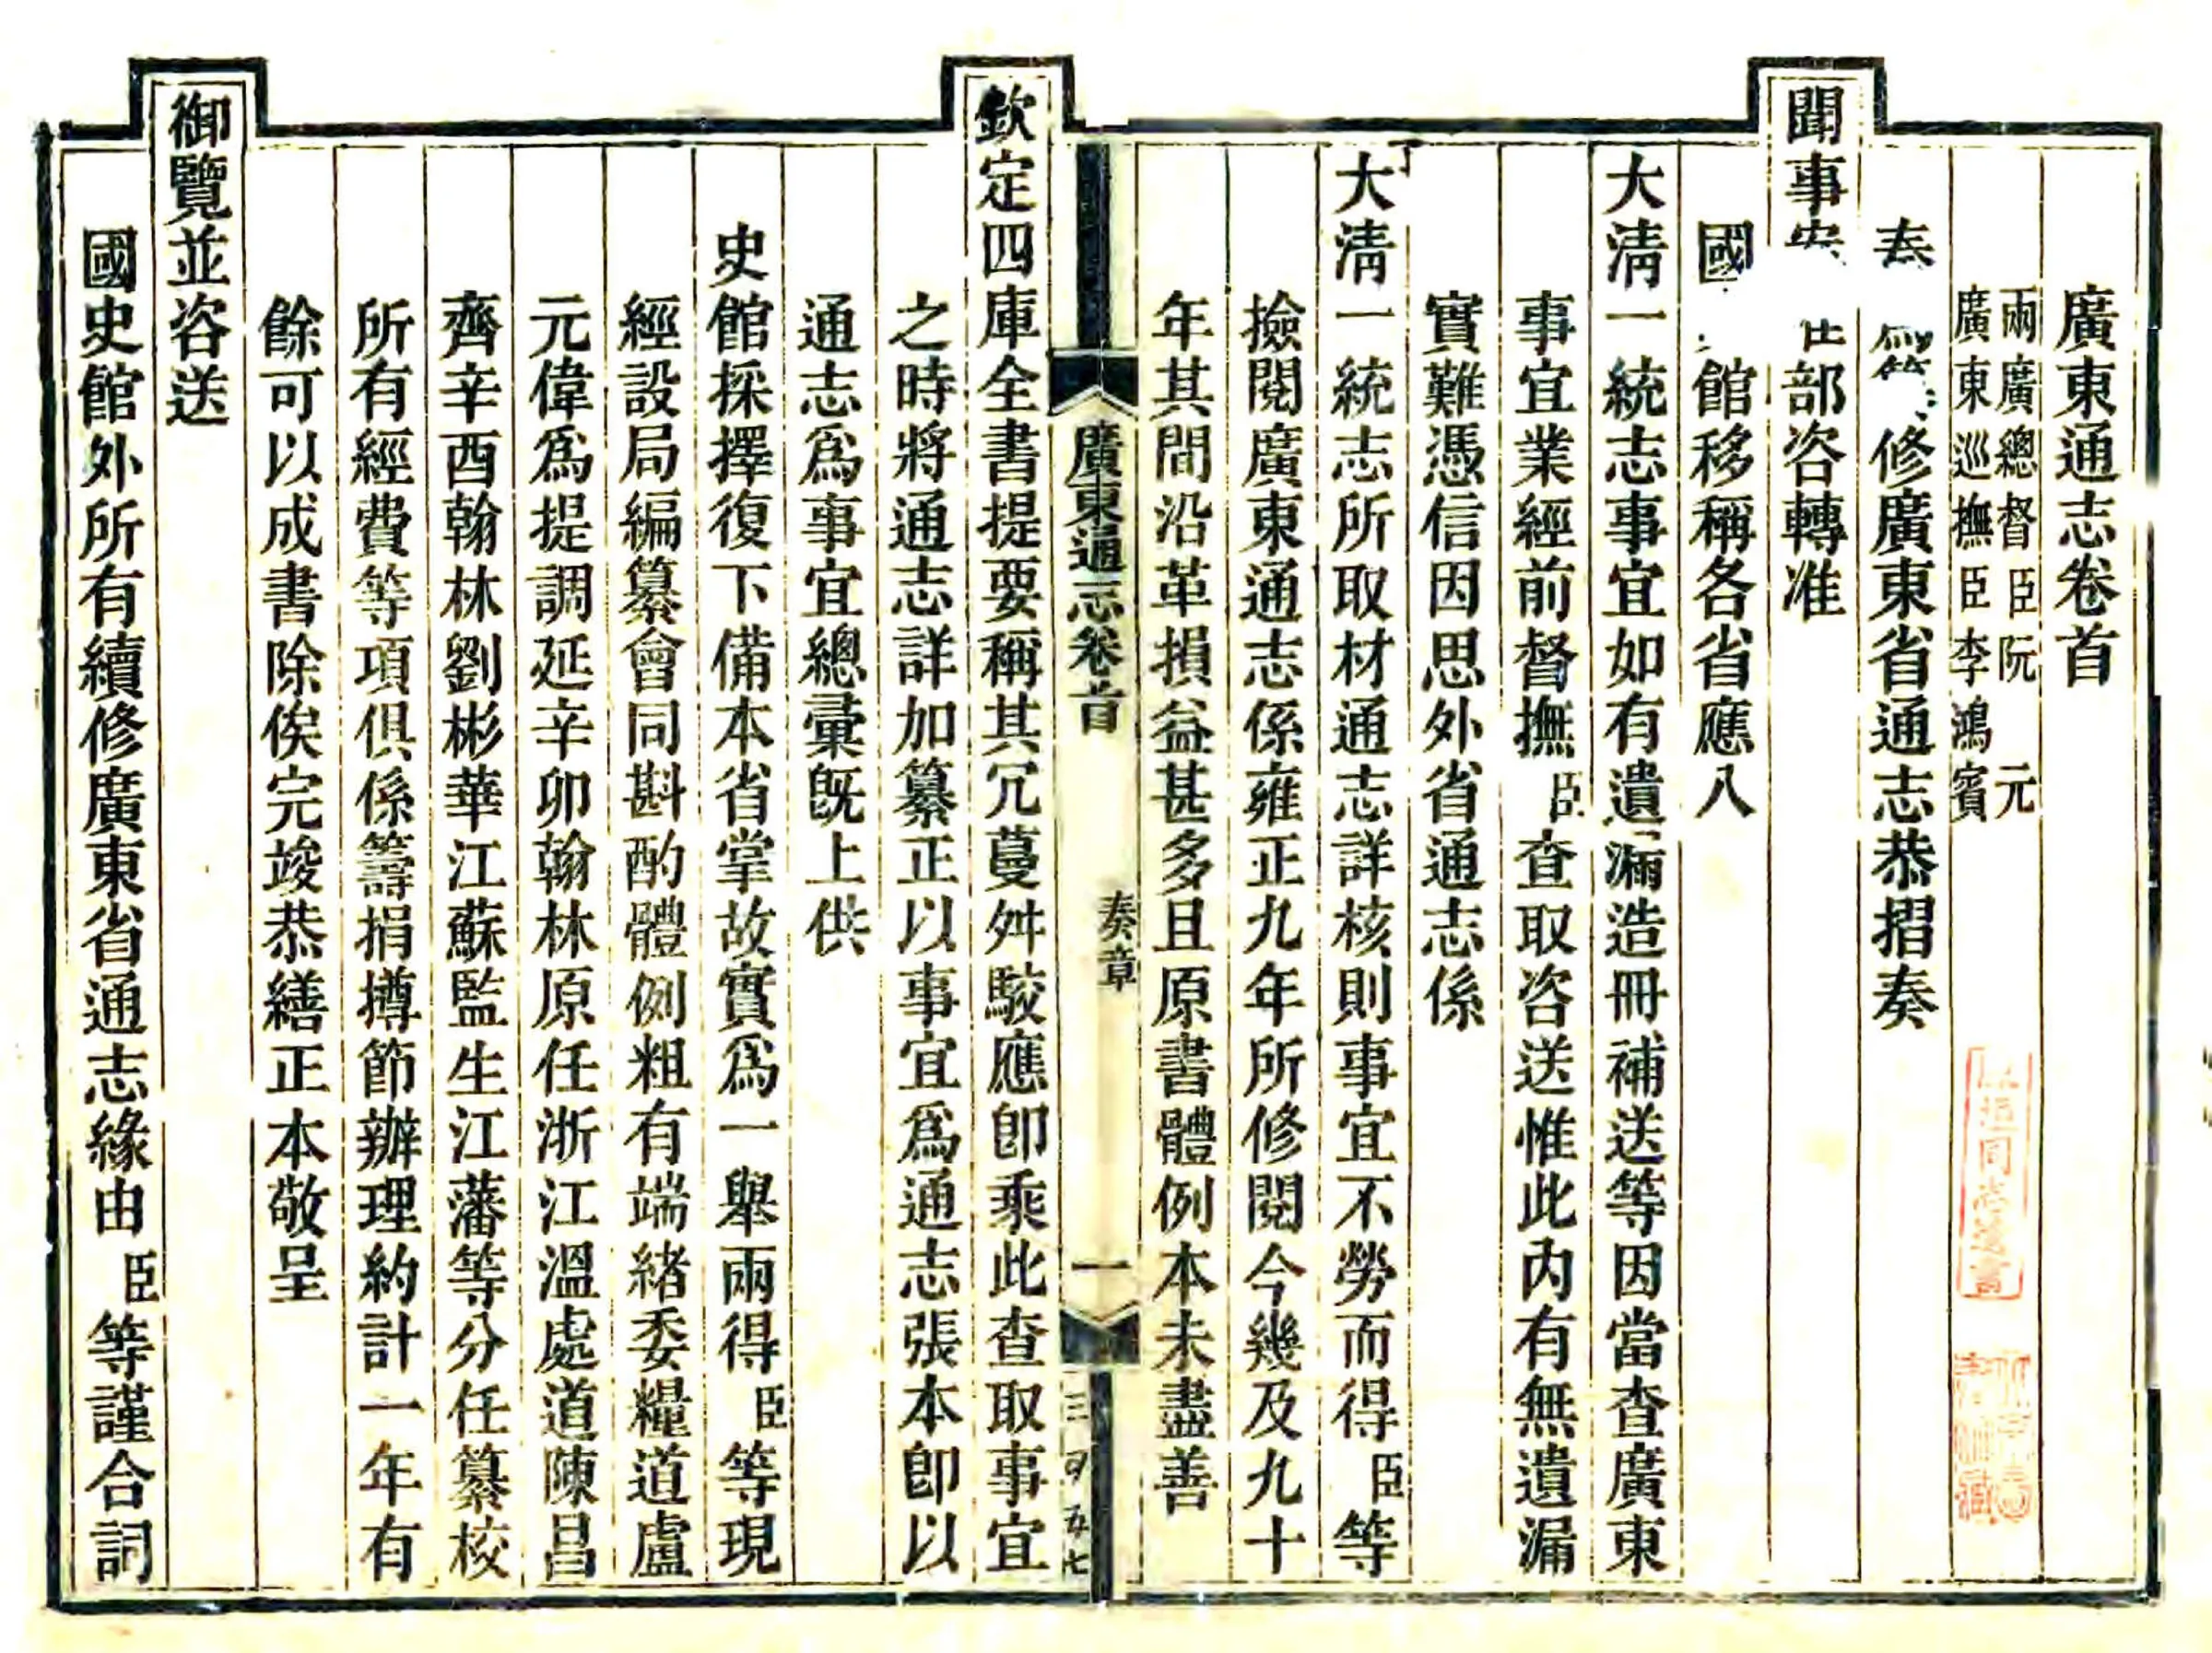 廣東通志卷首
兩廣總督臣阮 元
廣東巡撫臣李鴻賓
奏 修廣東省通志恭摺奏
聞事 部咨轉准
國 館移稱各省應入
大淸一統志事宜如有遺漏造冊補送等因當查廣東
事宜業經前督撫臣查取咨送惟此內有無遺漏
實難憑信因思外省通志係
大淸一統志所取材通志詳核則事宜不勞而得臣等
撿閱廣東通志係雍正九年所修閱今幾及九十
年其間沿革損益甚多且原書體例本未盡善
廣東通志卷首 奏章 一
欽定四庫全書提要稱其冗蔓舛駮應卽乘此查取事宜
之時將通志詳加纂正以事宜爲通志張本卽以
通志爲事宜總彙旣上供
史館採擇復下備本省掌故實爲一舉兩得臣等現
經設局編纂會同斟酌體例粗有端緒委糧道盧
元偉爲提調延辛卯翰林原任浙江溫處道陳昌
齊辛酉翰林劉彬華江蘇監生江藩等分任纂校
所有經費等項俱係籌捐撙節辦理約計一年有
餘可以成書除俟完竣恭繕正本敬呈
御覽並咨送
國史館外所有續修廣東省通志緣由臣等謹合詞